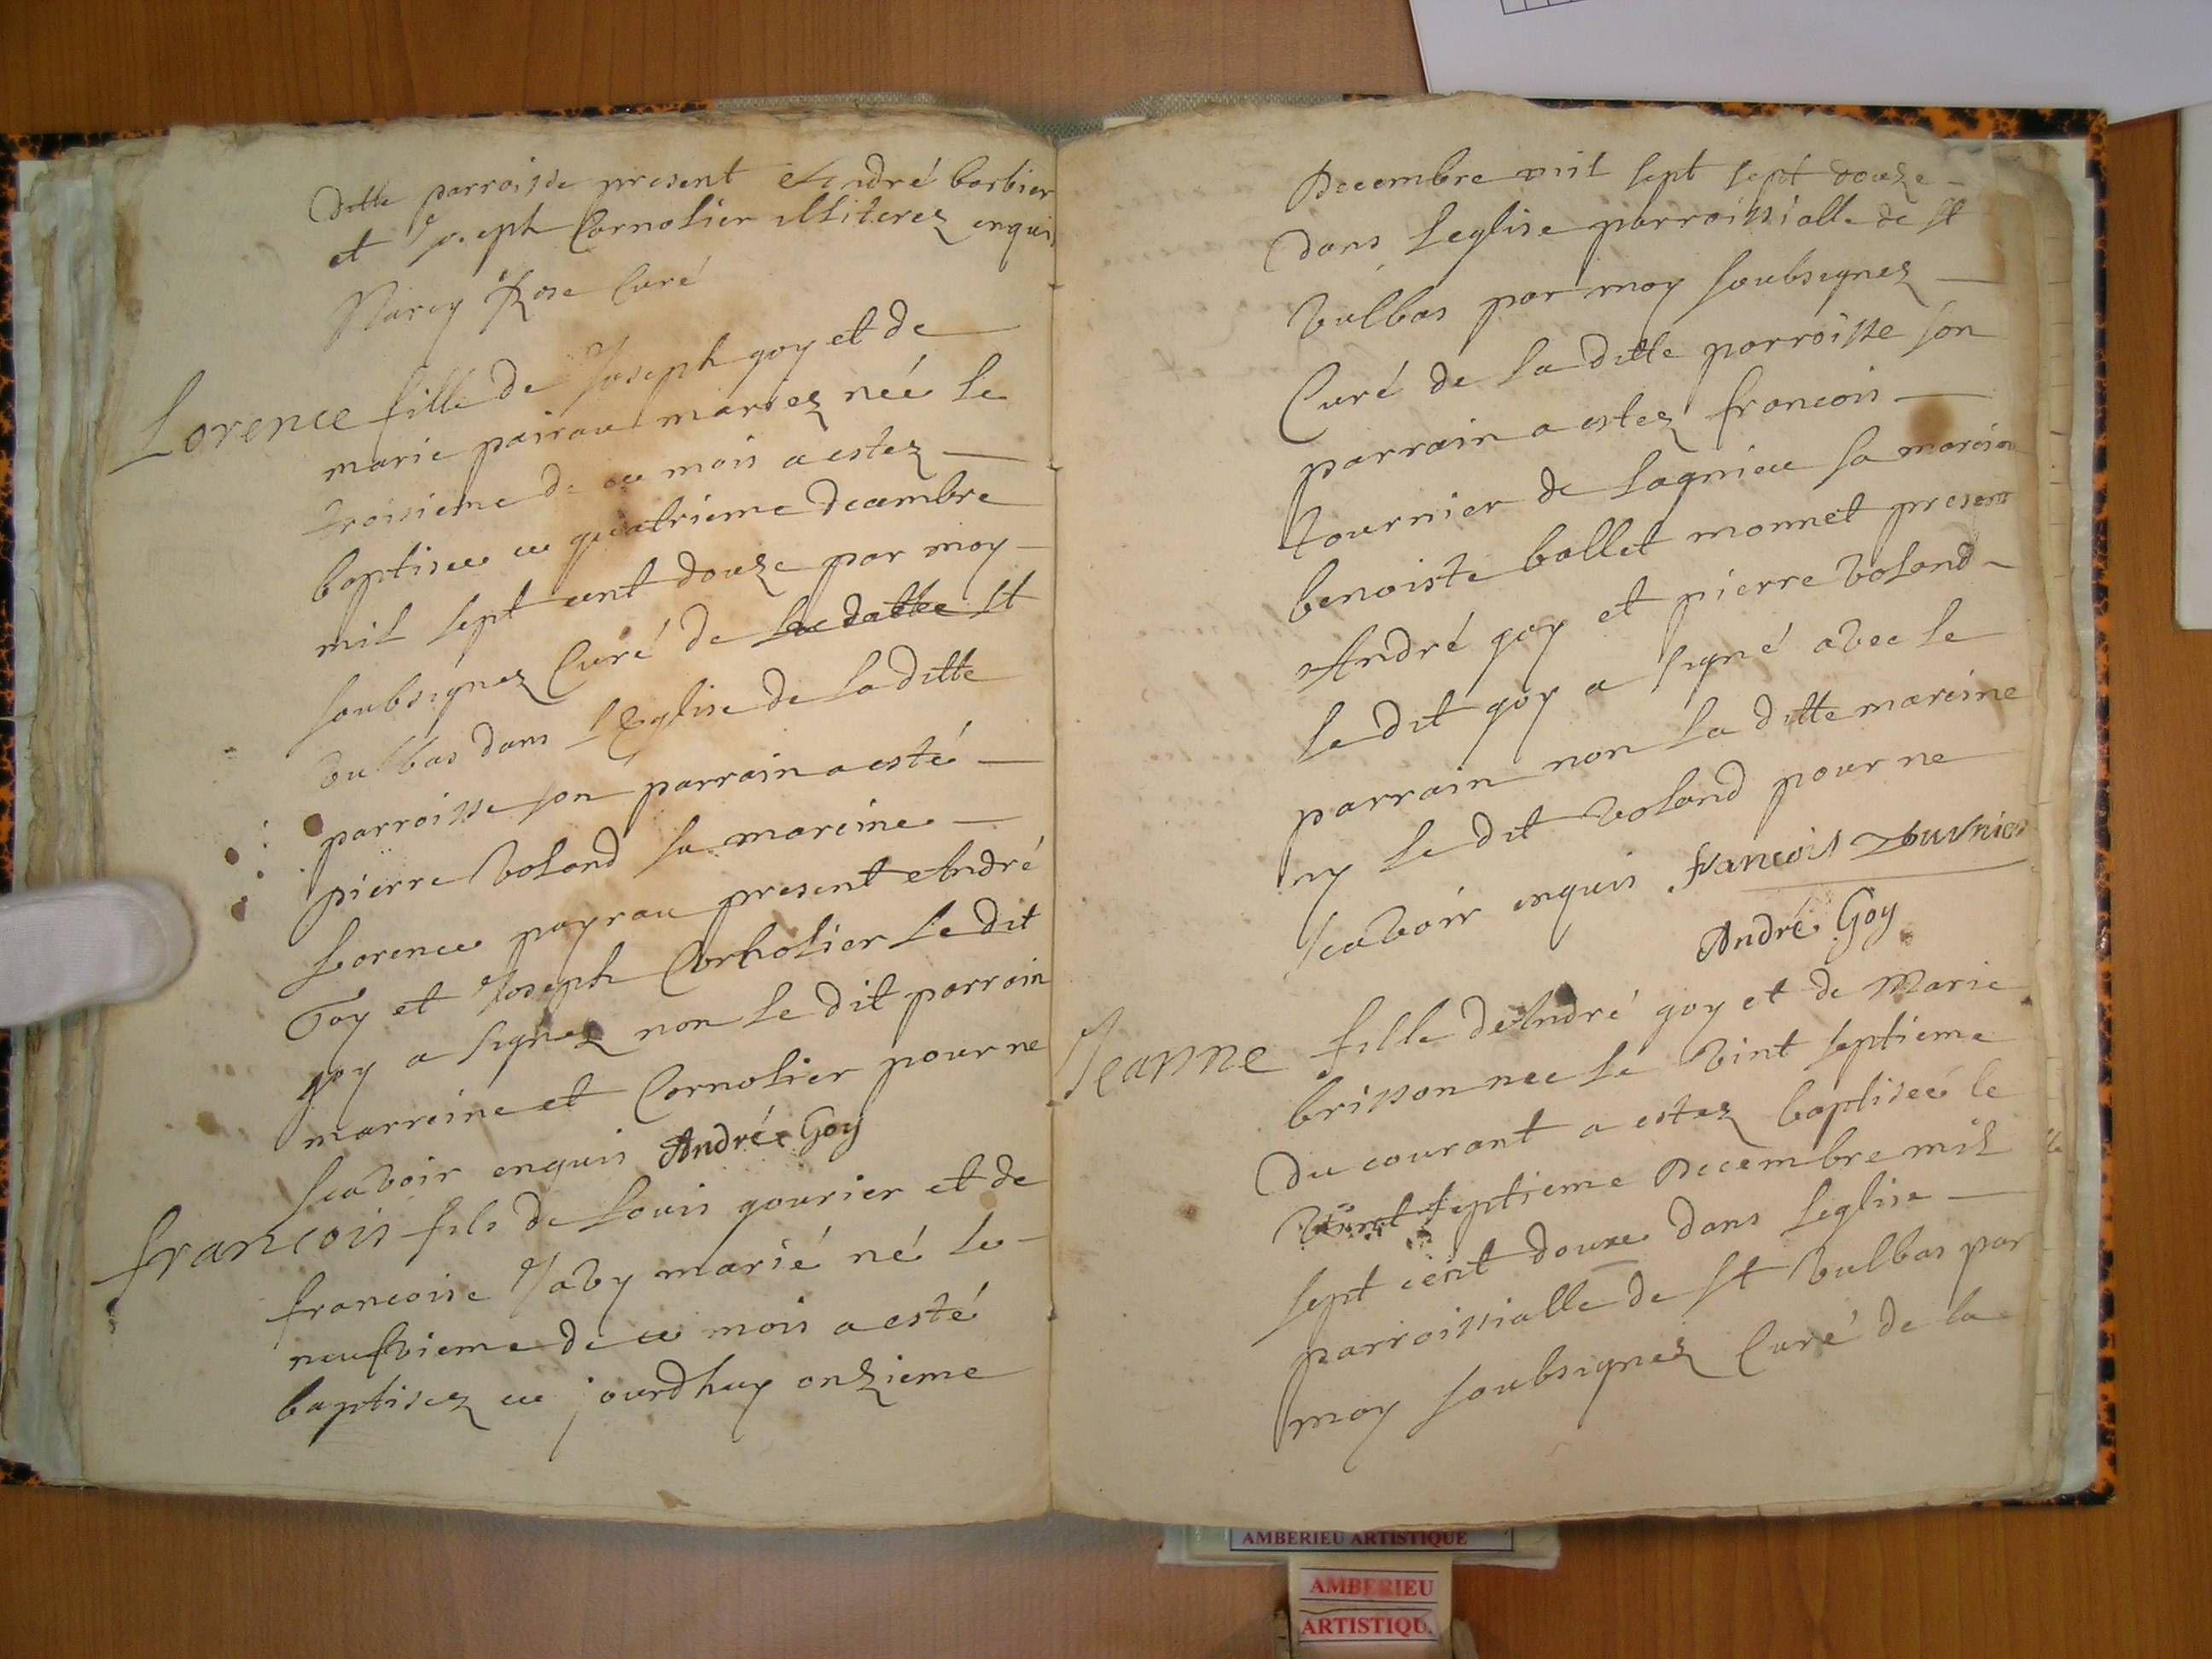 ditte parroisse present André barbier
et Joseph Cornolier illiterez enquis
Narcy Rose Curé
Lorence fille de Joseph goy et de
marie pairau mariez née le
troisieme de ce mois a estez
baptisee ce quatrieme decembre
mil sept cent douze par moy
soubsignez Curé de la ditte St
vulbas dans l'Eglise de la ditte
parroisse son parrain a esté
pierre voland sa mareine
Lorence payrau present André
Goy et Joseph Cornolier le dit
goy a signez non le dit parrain
marreine et Cornolier pour ne
scavoir enquis André Goy
francois fils de Louis gourier et de
francoise Javy marié né le
neufvieme de ce mois a esté
baptisez ce jourdhuy onzieme
Decembre mil sept sept douze
dans Leglise parroissialle de St
vulbas par moy soubsignez
Curé de la ditte parroisse son
parrain a estez francois
tournier de Lagnieu sa mareine
benoiste ballet monnet present
André goy et pierre voland
le dit goy a signé avec le
parrain non la ditte mareine
ny le dit voland pour ne
scavoir enquis francois Tournier
André Goy
Jeanne fille de André goy et de Marie
brisson nee le vint septieme
du courant a estez baptiseé le
vint septieme Decembre mil
sept cent douze dans Leglise
parroissialle de St vulbas par
moy soubsignez Curé de la
AMBERIEU ARTISTIQUE
AMBERIEU
ARTISTIQU